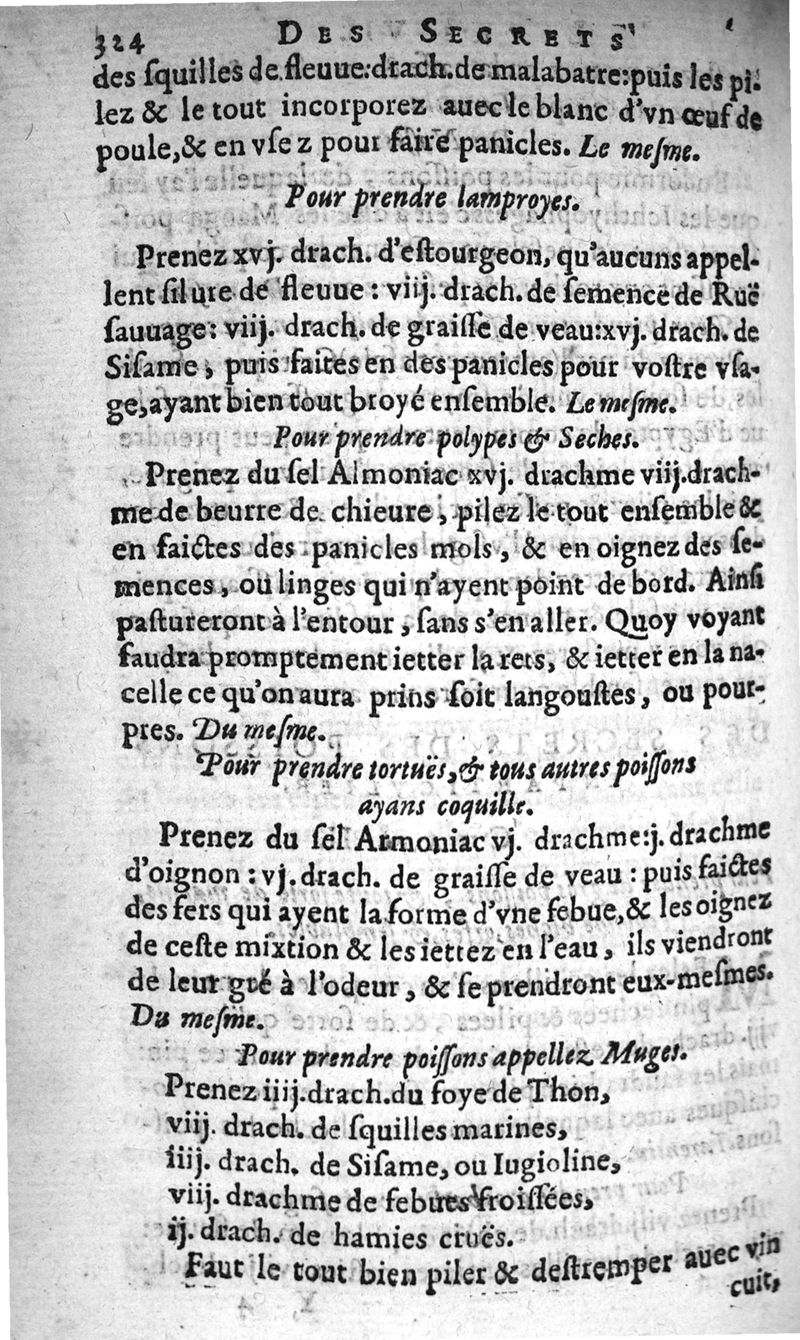 324 DES SECRETS
des ſquilles de fleuue:drach.de malabatre:puis les pi-
lez & le tout incorporez auec le blanc d'vn œuf de
poule,& en vſez pour faire panicles. Le meſme.
Pour prendre lamproyes.
Prenez xvj. drach. d'eſtourgeon, qu'aucuns appel-
lent ſilure de fleuue : viij. drach. de ſemence de Ruë
ſauuage: viij. drach. de graiſſe de veau:xvj. drach. de
Siſame, puis faites en des panicles pour voſtre vſa-
ge,ayant bien tout broyé enſemble. Le meſme.
Pour prendre polypes & Seches.
Prenez du ſel Almoniac xvj. drachme viij.drach-
me de beurre de chieure, pilez le tout enſemble &
en faictes des panicles mols, & en oignez des ſe-
mences, ou linges qui n'ayent point de bord. Ainſi
paſtureront à l'entour, ſans s'en aller. Quoy voyant
faudra promptement ietter la rets, & ietter en la na-
celle ce qu'on aura prins ſoit langouſtes, ou pour-
pres. Du meſme.
Pour prendre tortuës,& tous autres poiſſons
ayans coquille.
Prenez du ſel Armoniac vj. drachme:j. drachme
d'oignon : vj. drach. de graiſſe de veau : puis faictes
des fers qui ayent la forme d'vne febue,& les oignez
de ceſte mixtion & les iettez en l'eau, ils viendront
de leur gré à l'odeur, & ſe prendront eux-meſmes.
Du meſme.
Pour prendre poiſſons appellez Muges.
Prenez iiij.drach.du foye de Thon,
viij. drach. de ſquilles marines,
iiij. drach. de Siſame, ou Iugioline,
viij. drachme de febues froiſſées,
ij. drach. de hamies cruës.
Faut le tout bien piler & deſtremper auec vin
cuit,